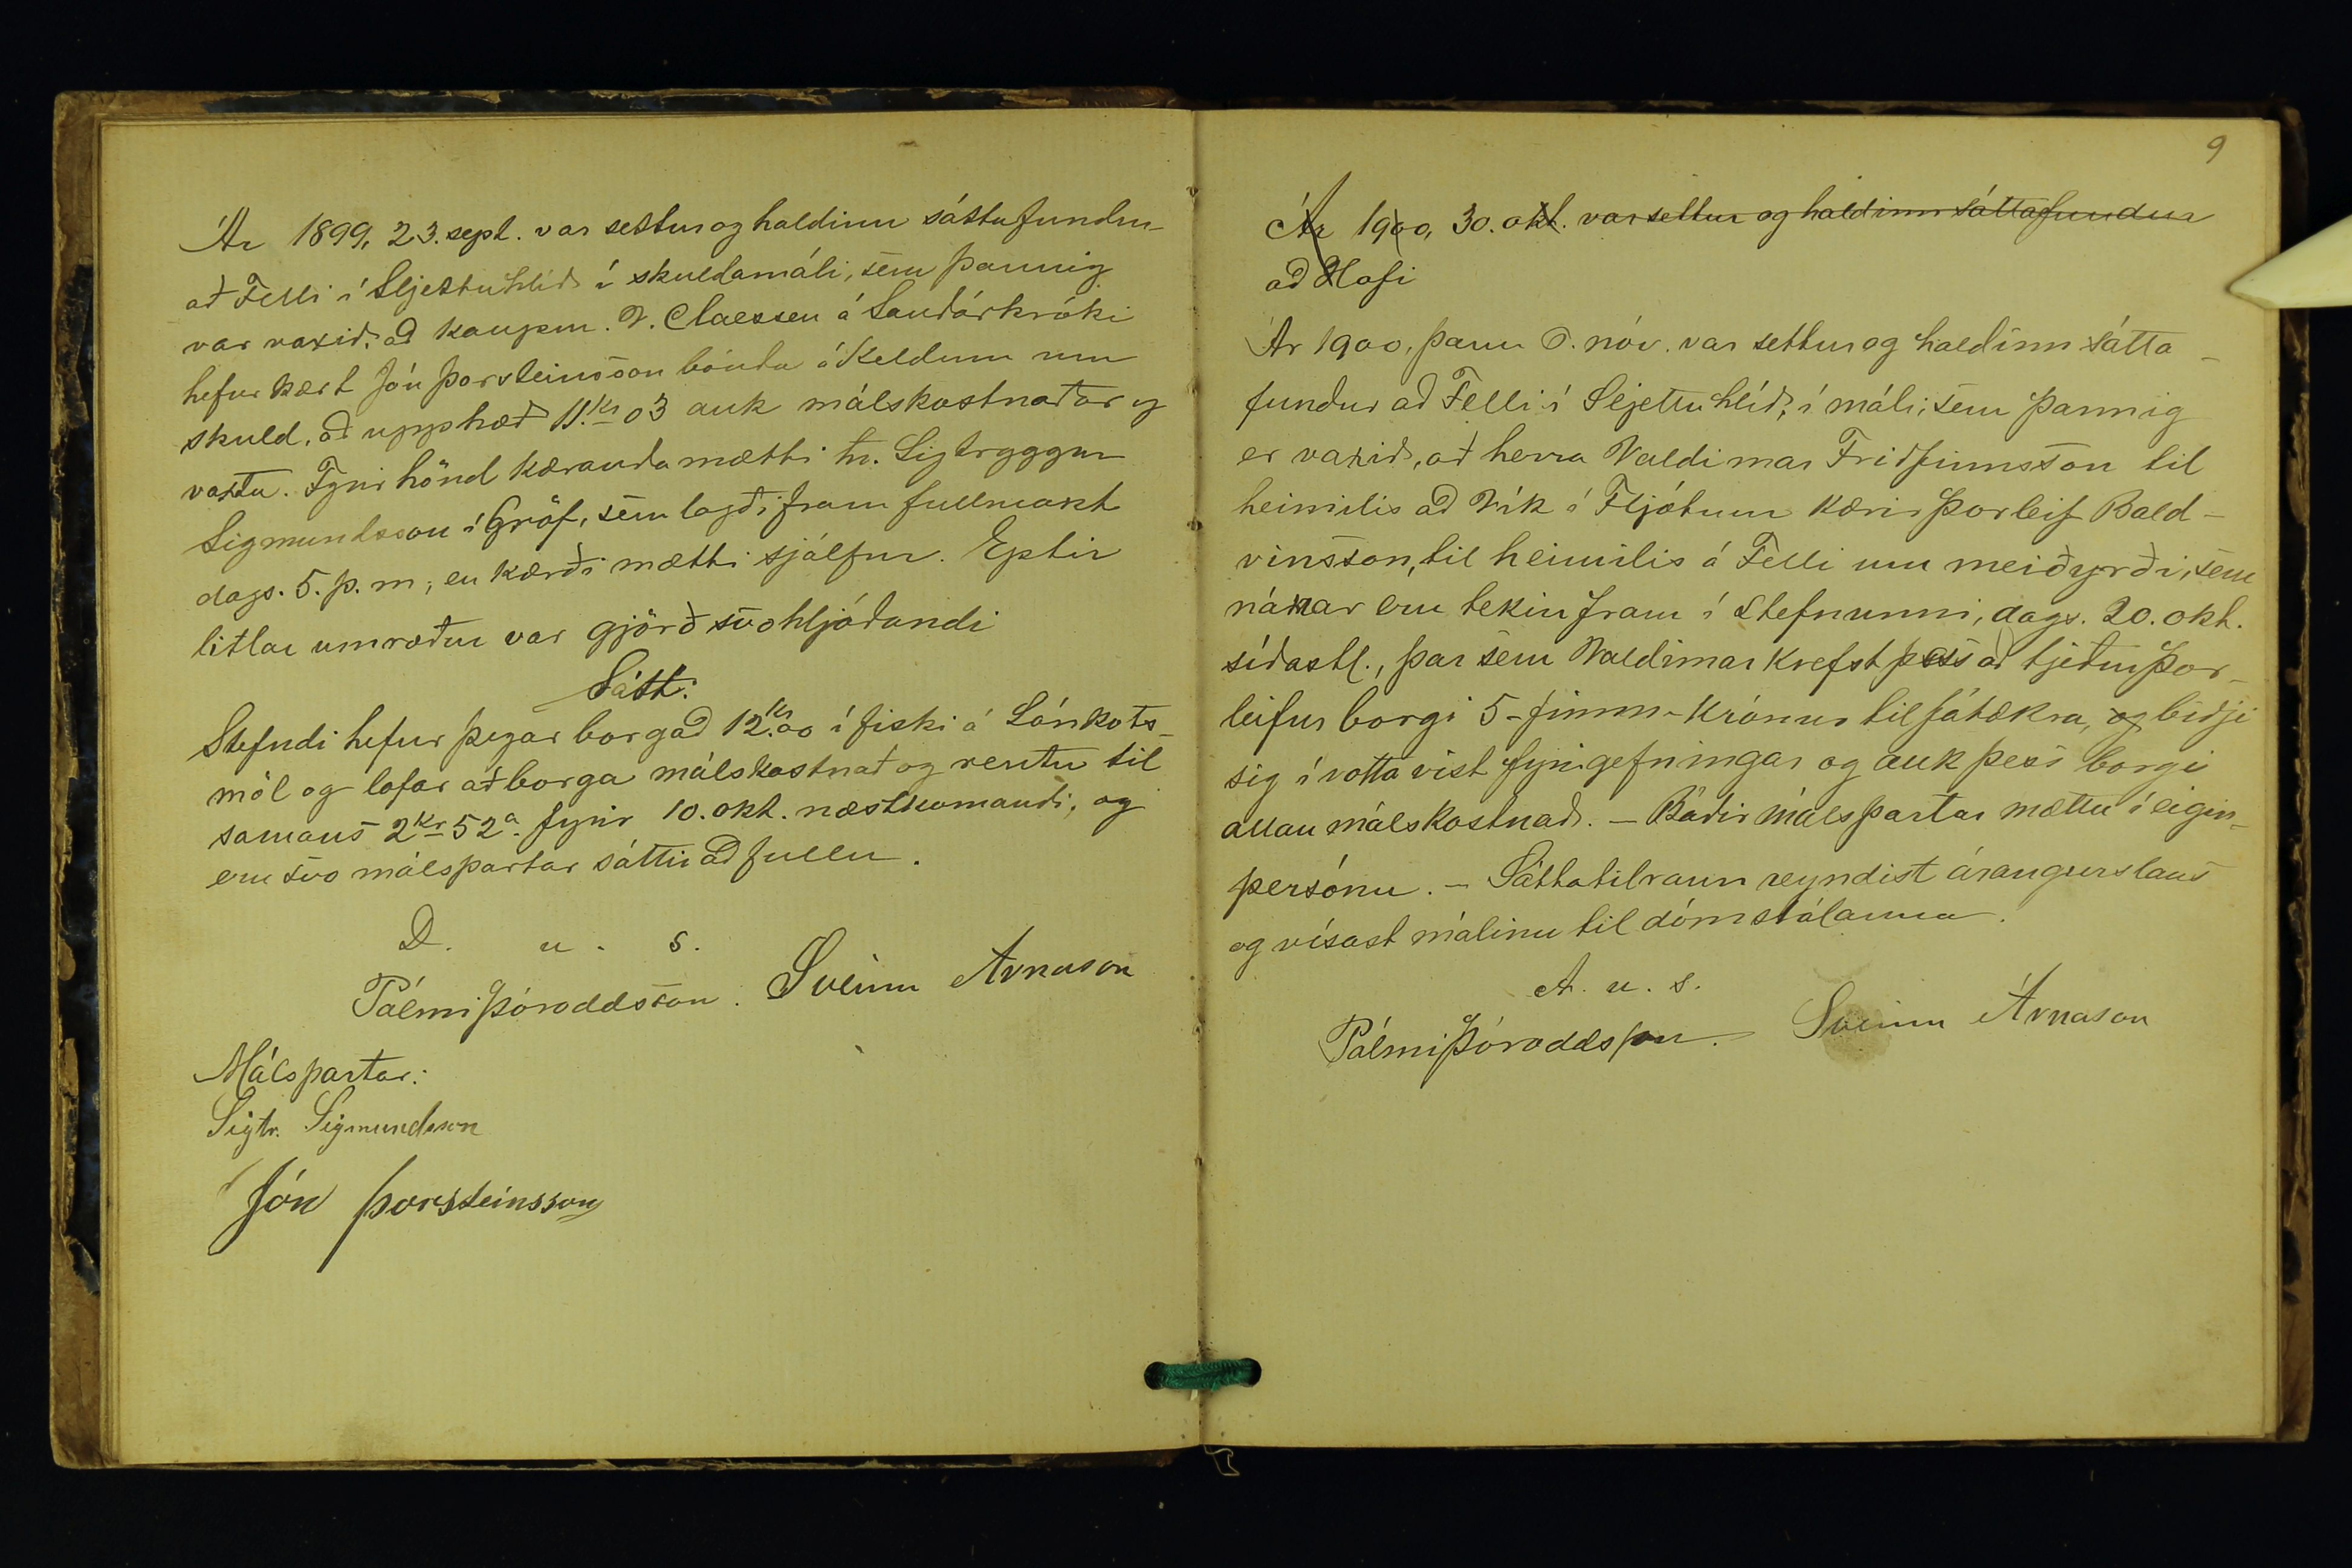 Ár 1899, 23. sept. var settur og haldinn sáttafundur
að Felli í Sljettuhlíð í skuldamáli, sem þannig
var vaxið, að kaupm. V. Claessen á Sauðárkróki
hefur kært Jón Þorsteinsson bónda á Keldum um
skuld, að upphæð 11.kr 03 auk málskostnaðar og
vaxta. Fyrir hönd kæranda mætti hr. Sigtryggur
Sigmundsson í Gröf, sem lagði fram fullmakt
dags. 5. þ. m., en kærði mætti sjálfur. Eptir
litlar umræður var gjörð svohljóðandi
Sátt:
Stefndi hefur þegar borgað 12.kr 00 í fiski á Lónkots-
möl og lofar að borga málskostnað og rentu til
samans 2kr 52a. fyrir 10. okt. næstkomandi, og
eru svo málspartar sáttir að fullu.
D. u. s.
Pálmi Þóroddsson. Sveinn Árnason
Málspartar:
Sigtr. Sigmundsson
Jón Þorsteinsson
9
Ár 1900, 30. okt. var settur og haldinn sáttafundur
að Hofi
Ár 1900, þann 6. nóv. var settur og haldinn sátta-
fundur að Felli í Sljettuhlíð, í máli, sem þannig
er vaxið, að herra Valdimar Friðfinnsson til
heimilis að Vík í Fljótum kærir Þorleif Bald-
vinsson, til heimilis á Felli um meiðyrði, sem
nánar eru tekin fram í stefnunni, dags. 20. okt.
síðastl., þar sem Valdimar krefst þess að tjeður Þor-
leifur borgi 5 - fimm - krónur til fátækra, og biðji
sig í votta vist fyrirgefningar og auk þess borgi
allan málskostnað. - Báðir málspartar mættu í eigin-
persónu. - Sáttatilraun reyndist árangurslaus
og vísast málinu til dómstólanna.
A. u. s.
Pálmi Þóroddsson. Sveinn Árnason